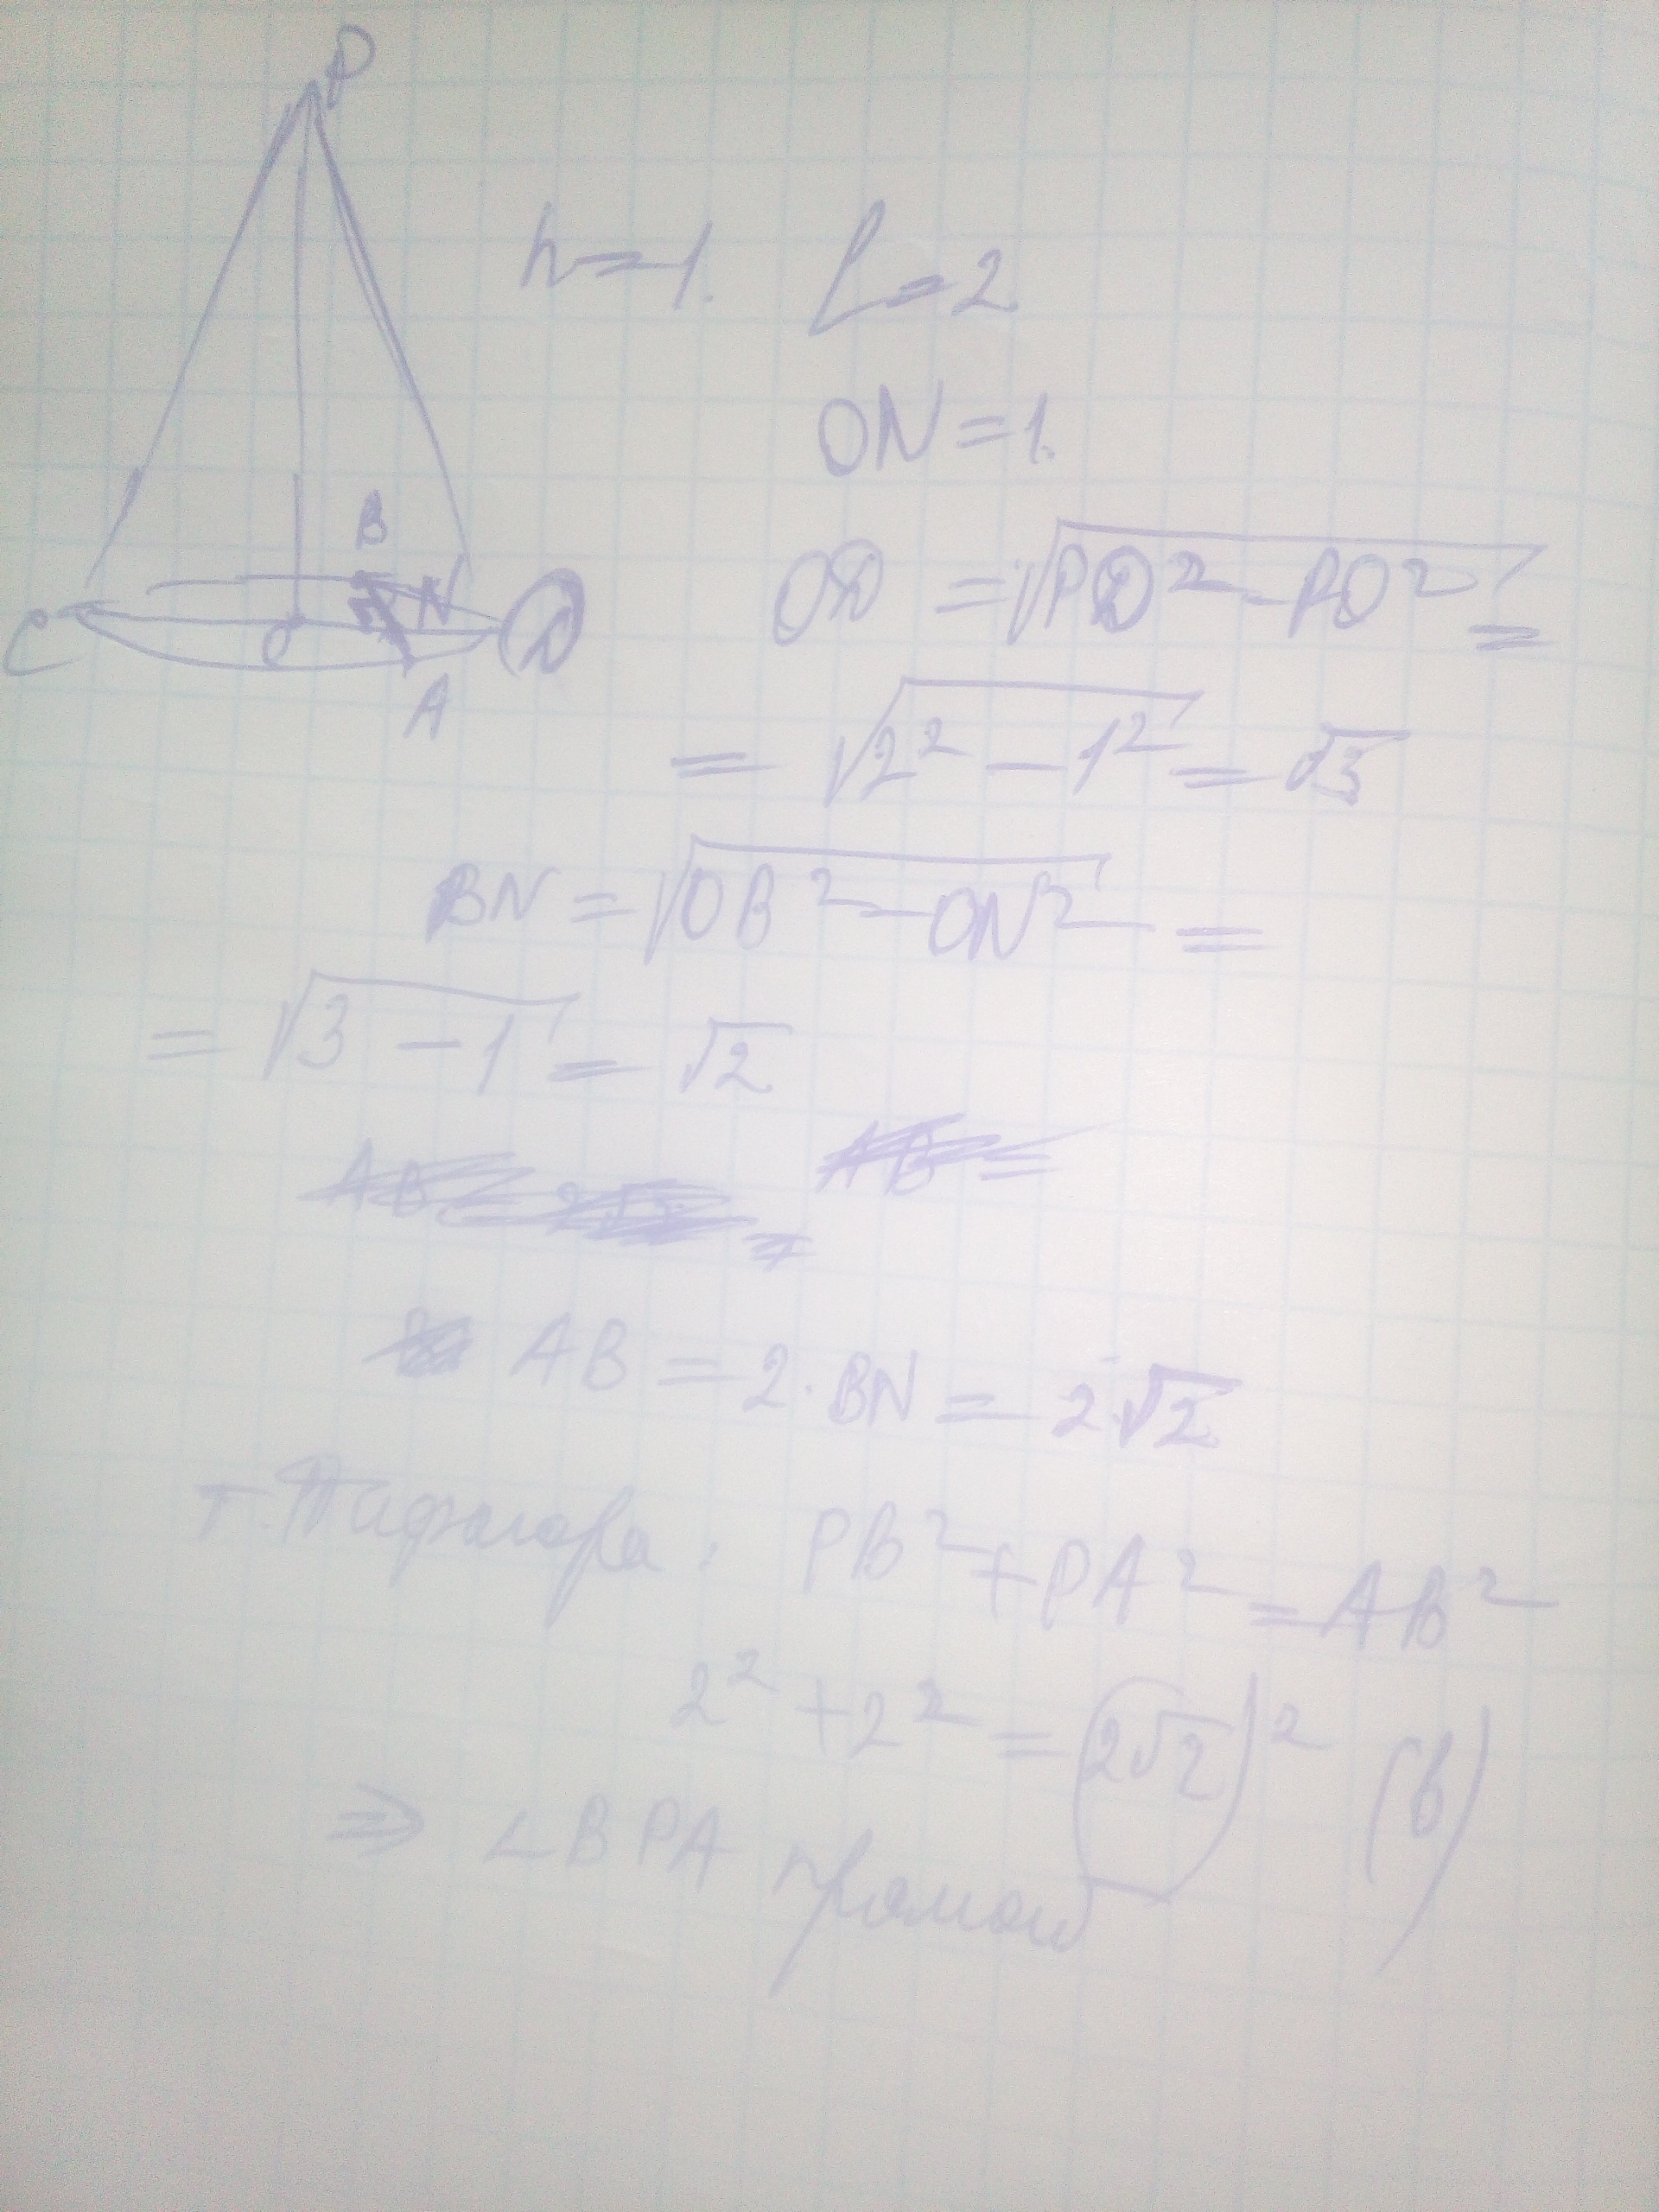 P
h=1. L=2
ON=1.
B
N
C O D
A
OD = √PD² - PO² =
= √2² - 1² = √3
BN = √OB² - ON² =
= √3 - 1 = √2
AB =
AB = 2·BN = 2√2
т. Пифагора: PB² + PA² = AB²
2² + 2² = (2√2)² (в)
⇒ ∠BPA прямой